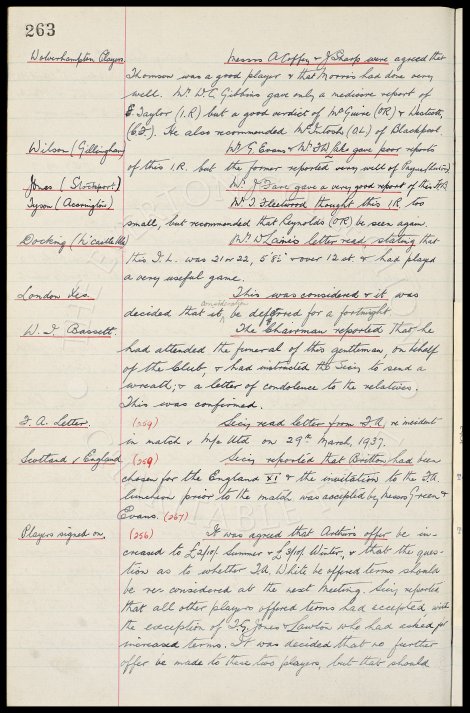 263
Wolverhampton Players. Messrs A Coffey & J Sharp were agreed that
Thomson was a good player & that Morris had done very
well. Mr. W.C. Gibbins gave only a mediocre report of
E. Taylor (I.R) but a good verdict of McGuire (OR) &
(C.F.). He also recommended McIntosh (O.L) of Blackpool.
Wilson (Gillingham) Mr. G Evans & Mr gave poor reports
of this I.R. but the former reported very well of
Jones (Stockport) Mr. J Dare gave a very good report of this
Tyson (Accrington) Mr. J Fleetwood thought this I.R. too
small, but recommended that Reynolds (OR) be seen again.
Docking (N'castle Utd) Mr. W Laines letter read, stating that
this I.L. was 21 or 22, 5'8½" & over 12 st. & had played
a very useful game.
London Xes. This was considered & it was
decided that it, consideration be deferred for a fortnight.
W. I Bassett. The Chairman reported that he
had attended the funeral of this gentleman, on behalf
of the Club, & had instructed the Secy to send a
wreath, & a letter of condolence to the relatives.
This was confirmed.
F. A. Letter. (259) Secy read letter from F.A. re incident
in match v M/c Utd on 29th March, 1937.
Scotland v England (259) Secy reported that Britton had been
chosen for the England XI & the invitation to the F.A.
luncheon prior to the match was accepted by Messrs Green &
Evans. (267)
Players signed on. (256) It was agreed that Arthur's offer be in-
creased to £2/10/- Summer & £3/10/- Winter, & that the ques-
tion as to whether T.A. White be offered terms should
be re-considered at the next meeting. Secy reported
that all other players offered terms had accepted with
the exception of T.G. Jones & Lawton who had asked for
increased terms. It was decided that no further
offer be made to these two players, but that should